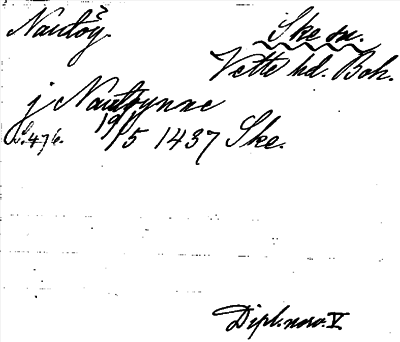 Nautöy.
Ske sn.
Vette hd. Boh.
j Nautoynne
S. 476. 19/5 1437 Ske.
Dipl. norv. V